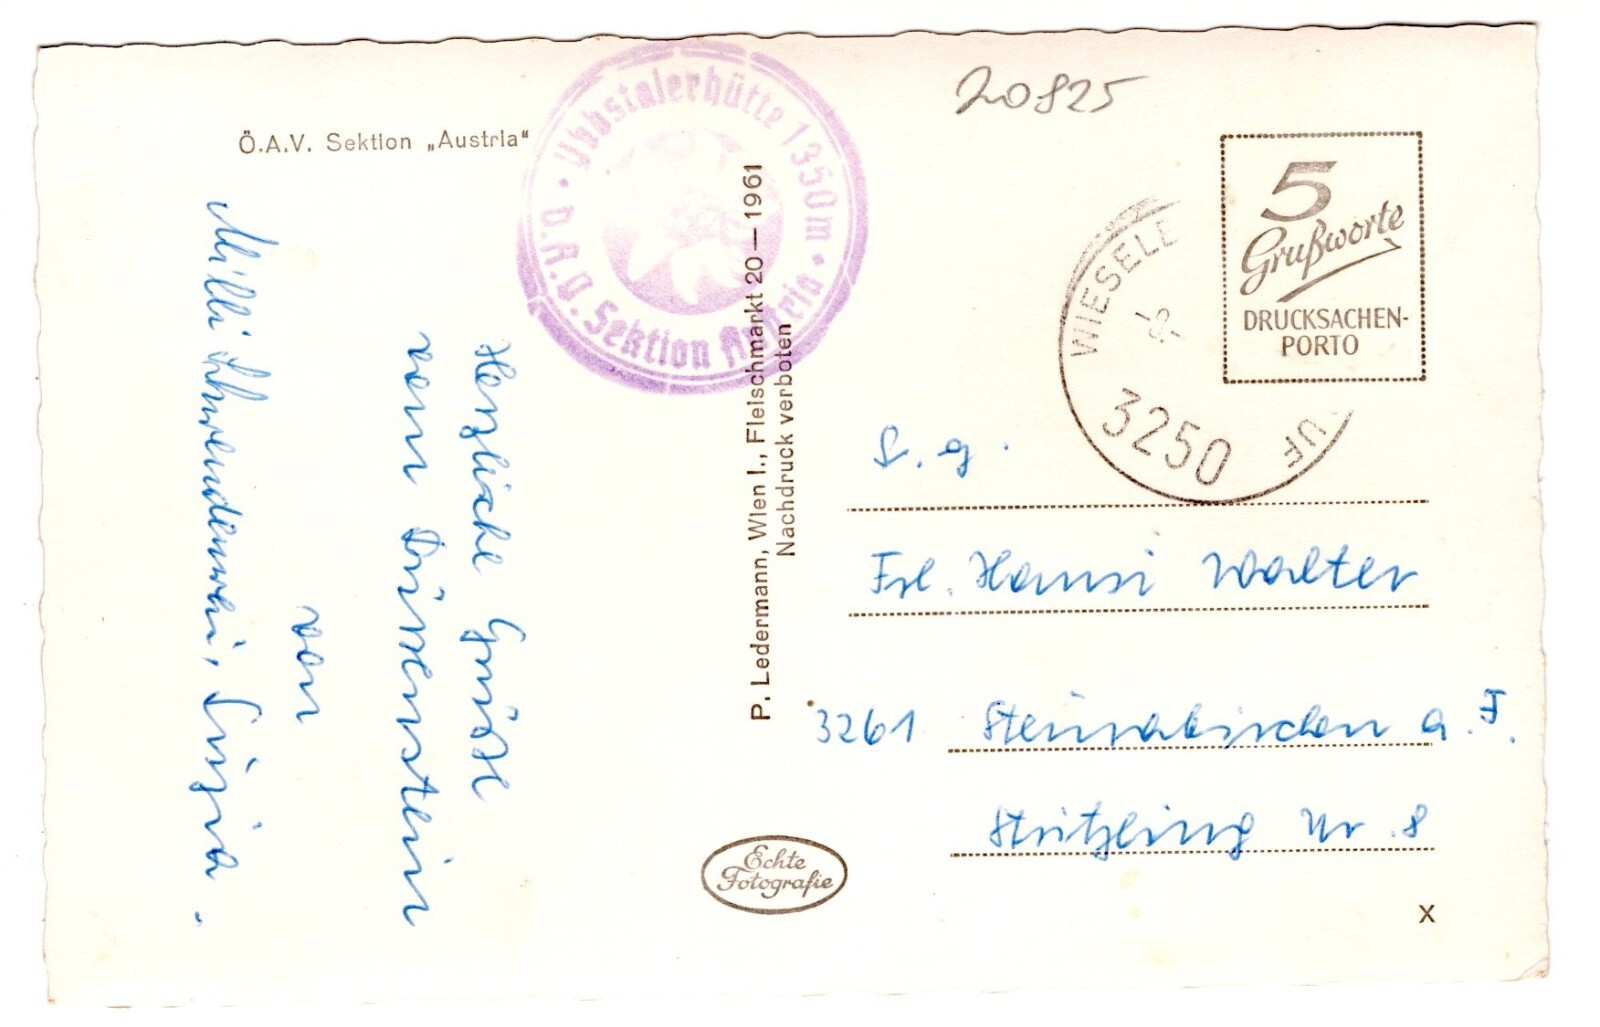 20825
Ö.A.V. Sektion „Austria“
Ybbstalerhütte 1350m
D.A.V. Sektion Austria
Herzliche Grüße
vom Dürrenstein
von
Milli
P. Ledermann, Wien I., Fleischmarkt 20—1961
Nachdruck verboten
Echte
Fotografie
5
Grußworte
DRUCKSACHEN-
PORTO
WIESELB
-9-
3250
UF
S. g.
Frl. Hansi Walter
3261 Steinakirchen a. F.
Stritzling Nr. 8
X